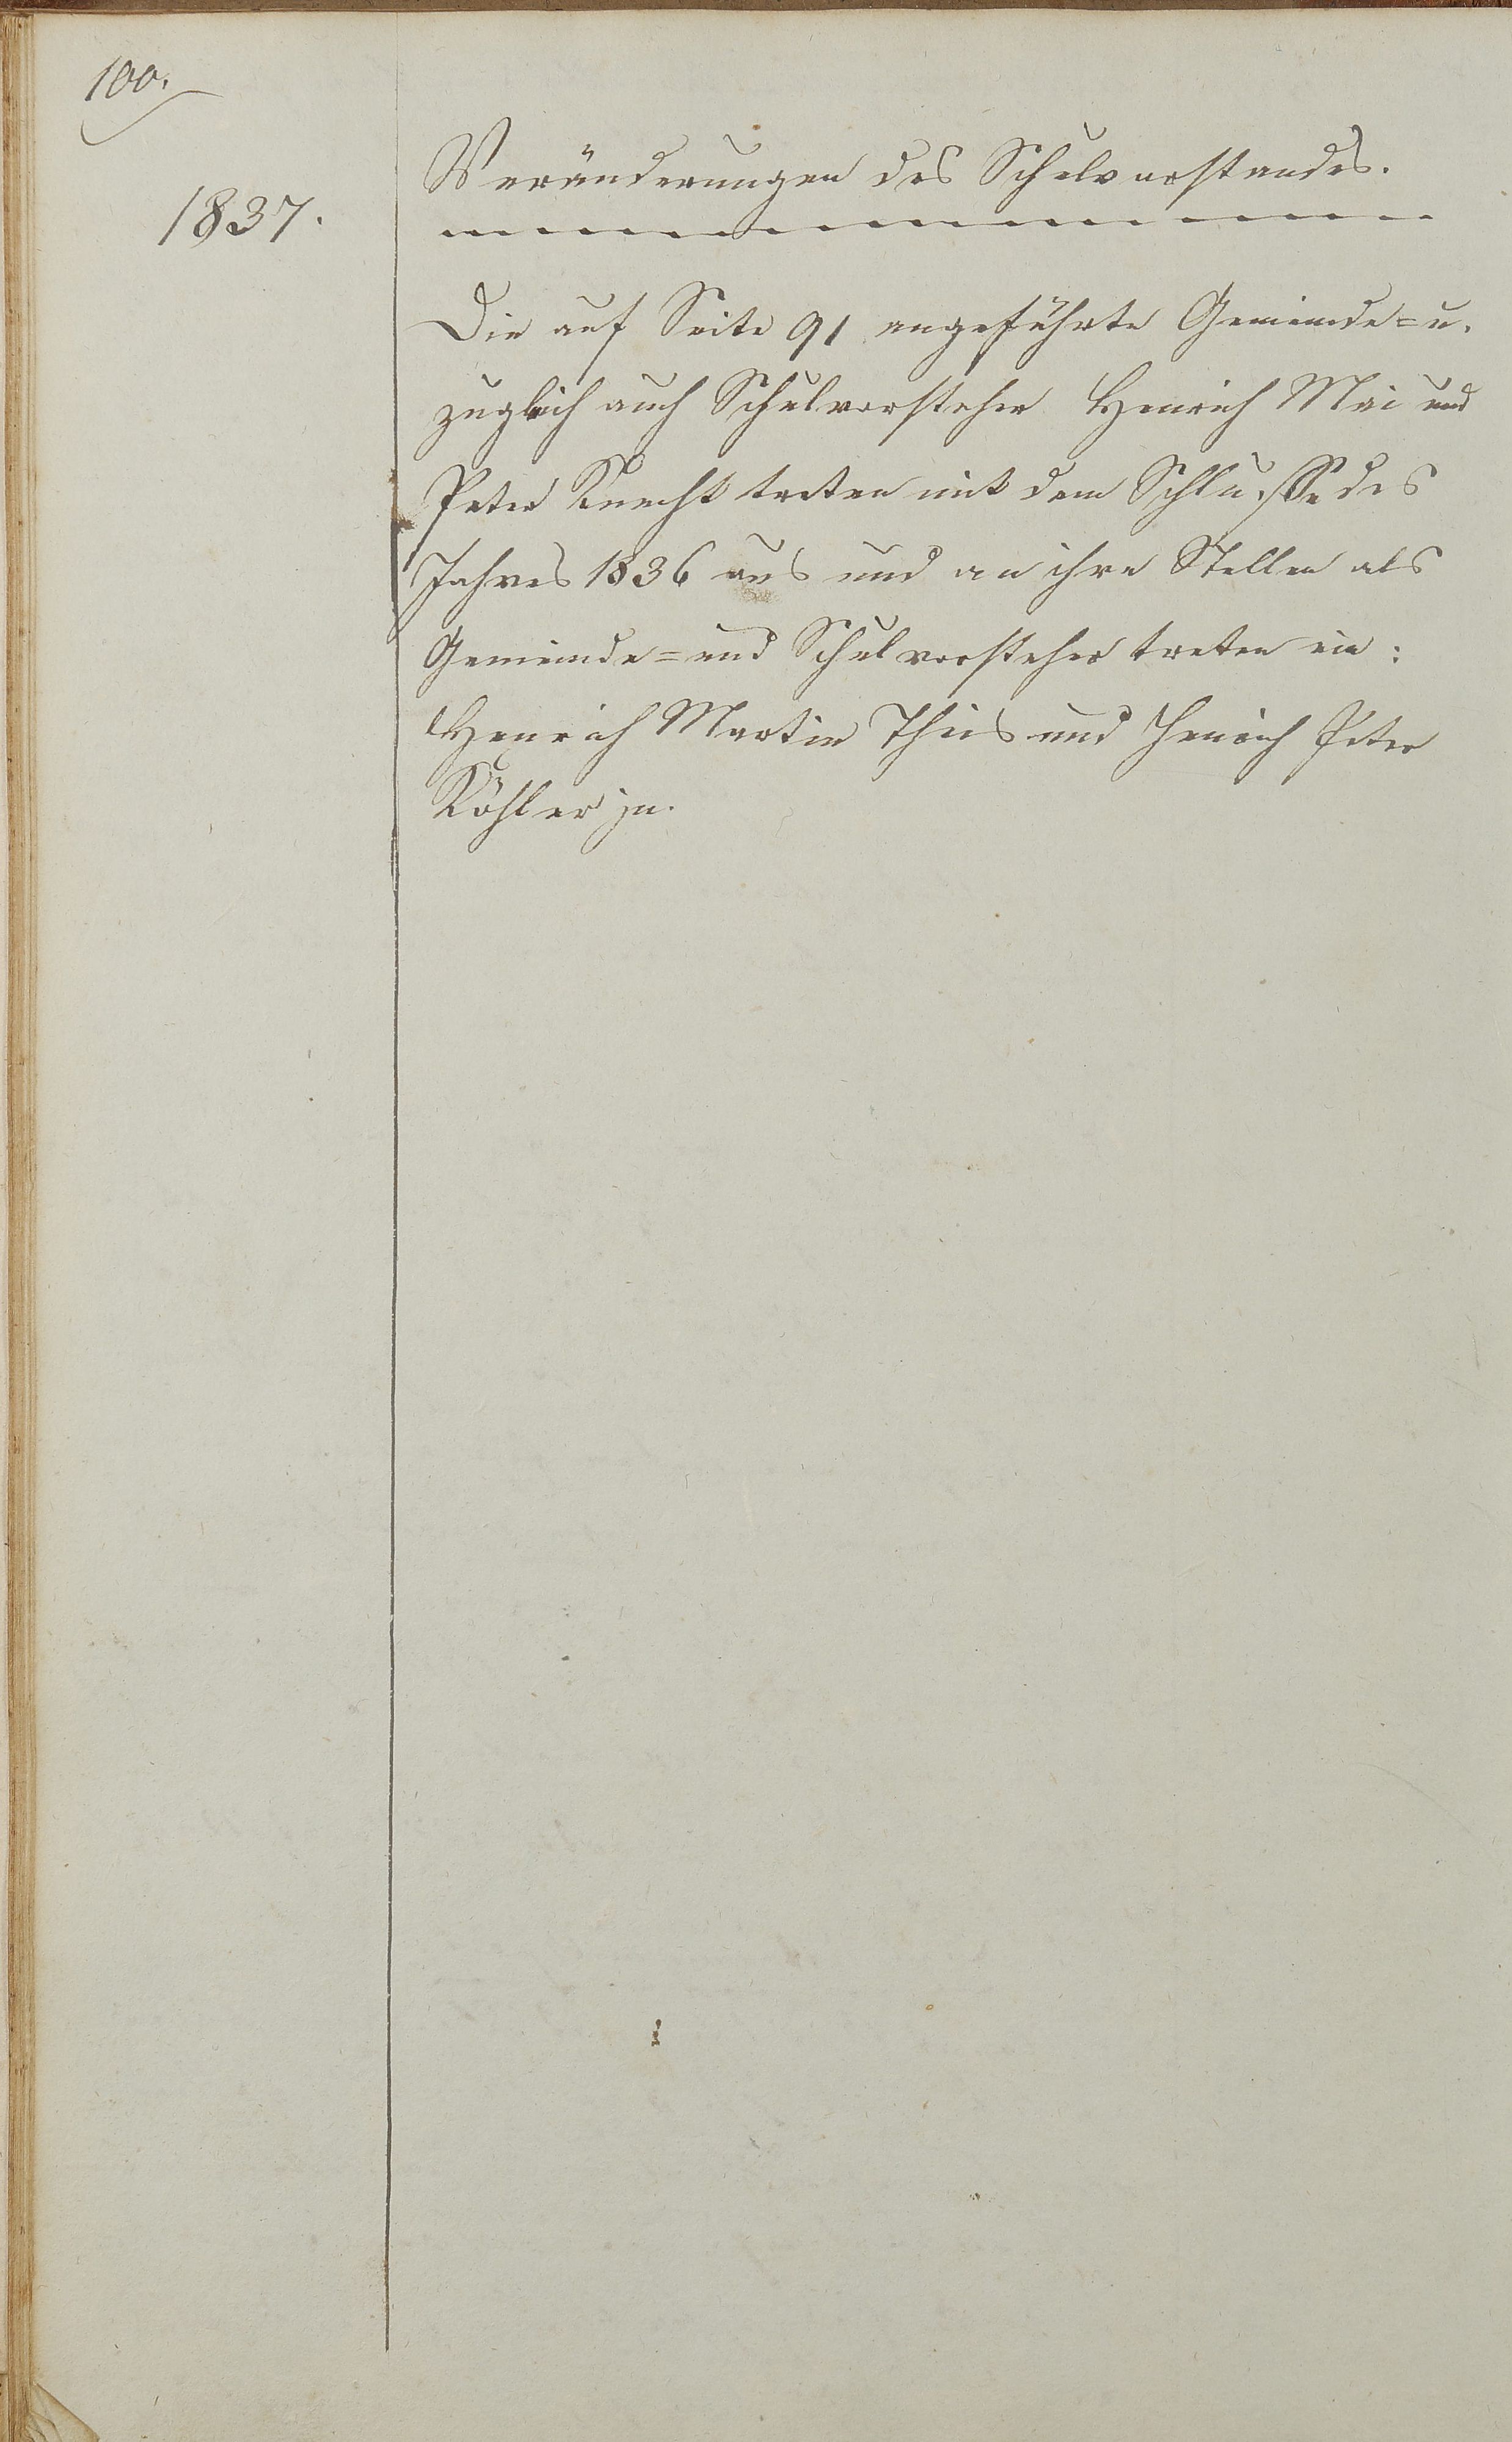 100.
1837.
Veränderungen des Schulvorstandes.
Die auf Seite 91 angeführte Gemeinde= u.
zugleich auch Schulvorsteher Henrich Mai und
Peter Knecht treten mit dem Schlusse des
Jahres 1836 aus und an ihre Stellen als
Gemeinde= und Schulvorsteher treten ein:
Henrich Martin Theis und Henrich Peter
Köhler jn.